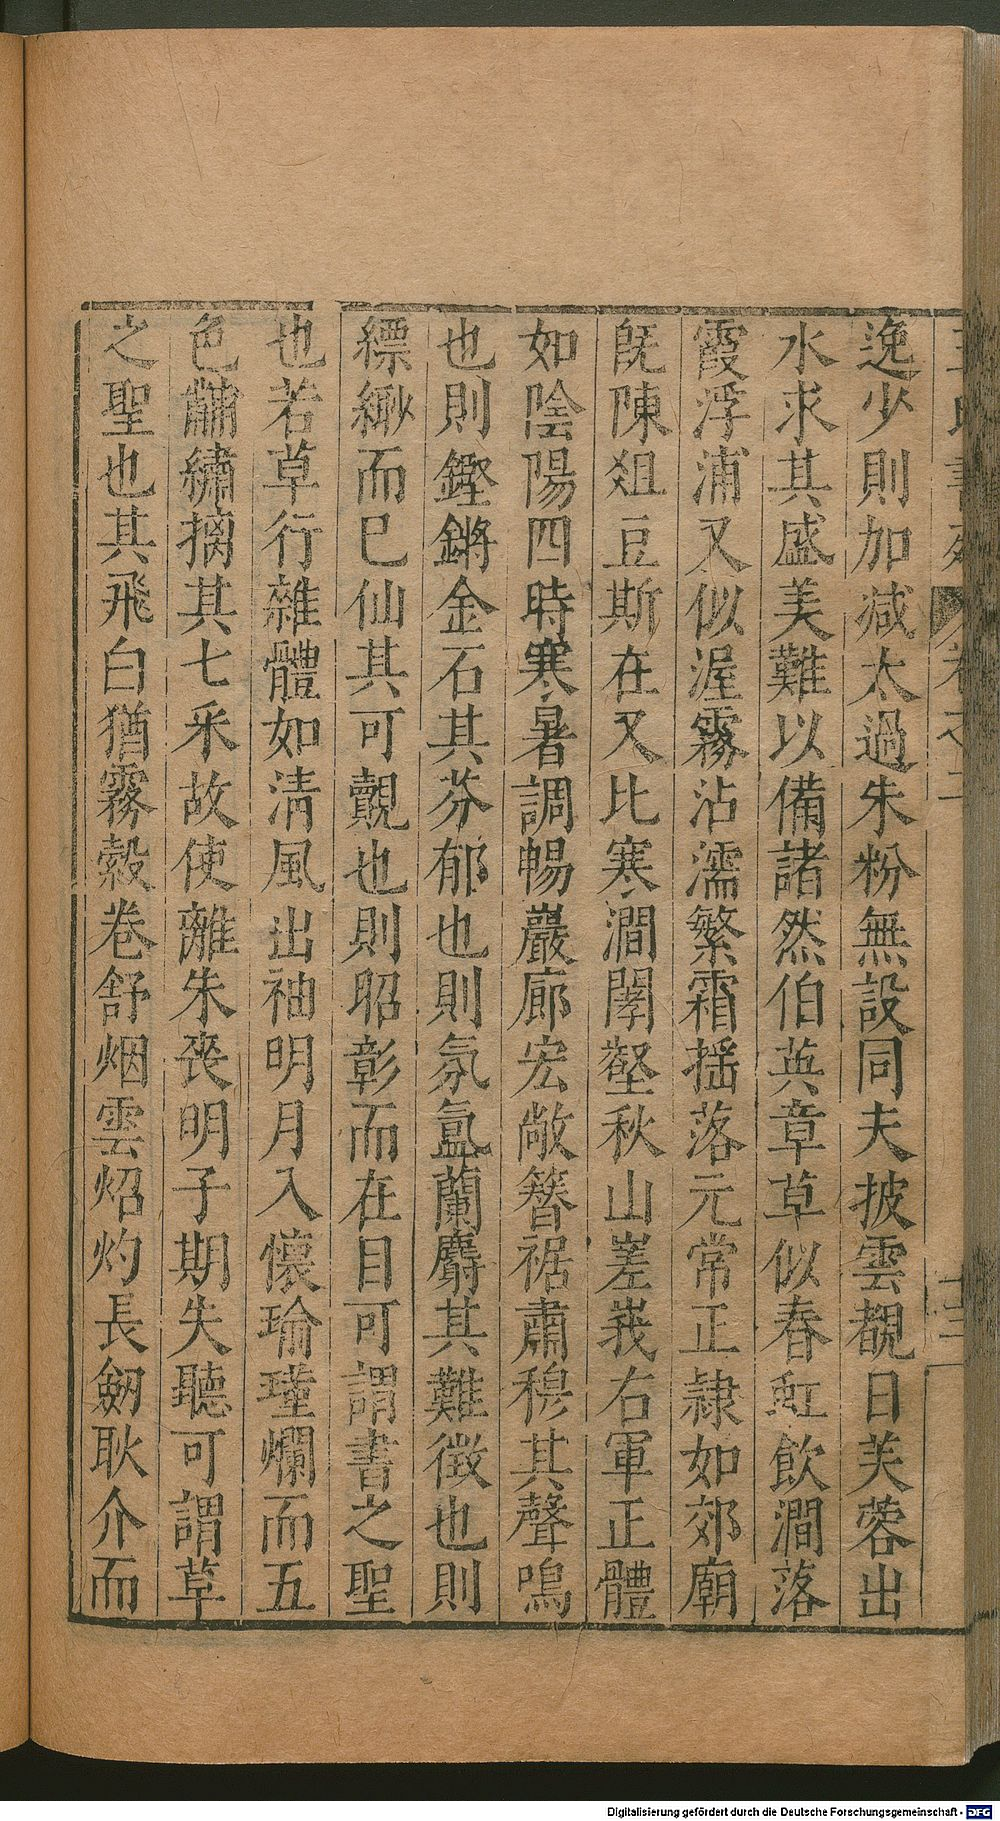 王氏書苑 卷之二 十三
逸少則加減太過朱粉無設同夫披雲覩日芙蓉出
水求其盛美難以備諸然伯英章草似春虹飲澗落
霞浮浦又似渥霧沾濡繁霜揺落元常正隷如郊廟
旣陳俎豆斯在又比寒澗䦨壑秋山嵳峩右軍正體
如陰陽四時寒暑調暢巖廊宏敞簪裾肅穆其聲鳴
也則鏗鏘金石其芬郁也則氛氲蘭麝其難徴也則
縹緲而巳仙其可覿也則昭彰而在目可謂書之聖
也若草行雜體如淸風出袖明月入懷瑜瑾爛而五
色黼繡摛其七釆故使離朱喪明子期失聽可謂草
之聖也其飛白猶霧縠卷舒烟雲炤灼長劒耿介而
Digitalisierung gefördert durch die Deutsche Forschungsgemeinschaft - DFG